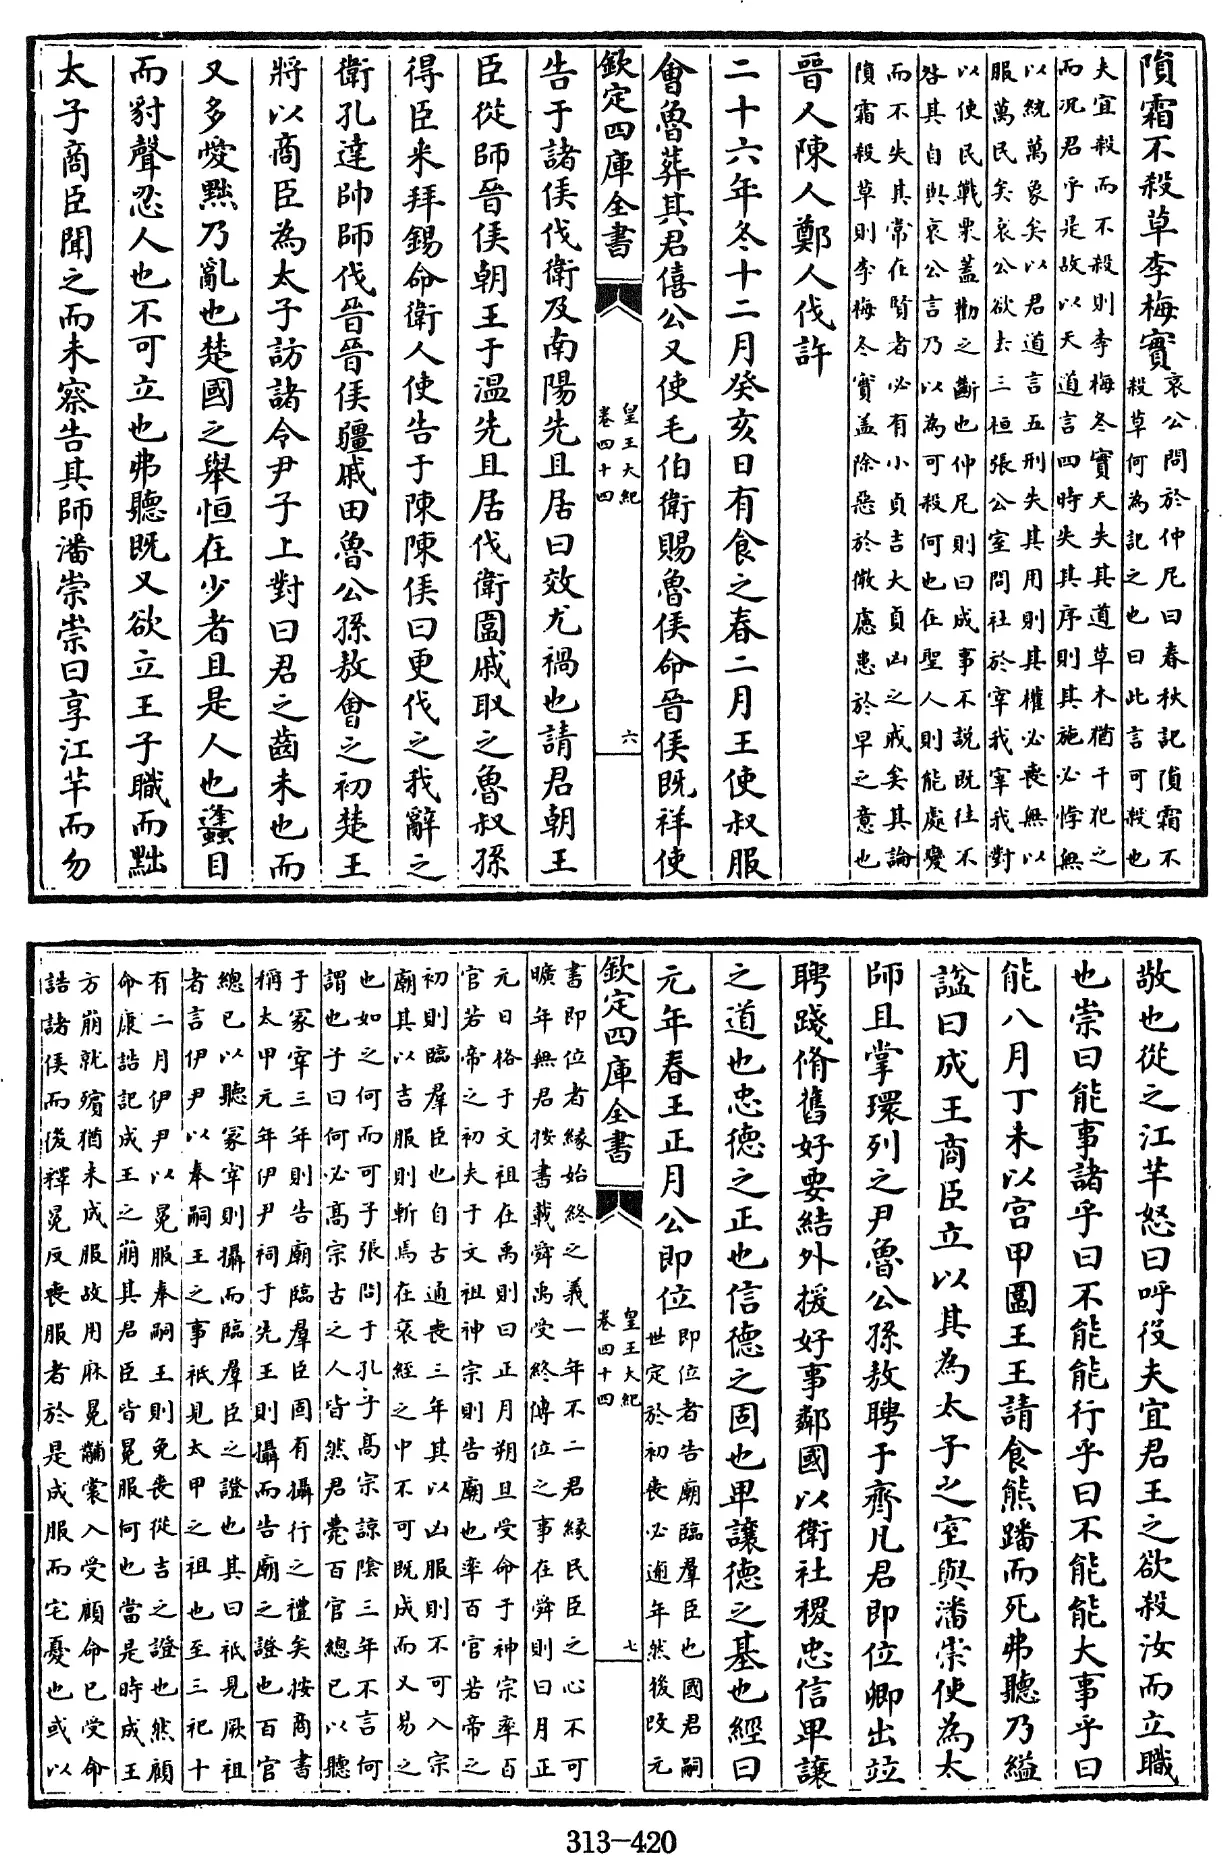 隕霜不殺草李梅實哀公問於仲尼曰春秋記隕霜不
殺草何為記之也曰此言可殺也
夫宜殺而不殺則李梅冬實天失其道草木猶干犯之
而况君乎是故以天道言四時失其序則其施必悖無
以統萬象矣以君道言五刑失其用則其權必喪無以
服萬民矣哀公欲去三桓張公室問社於宰我宰我對
以使民戰栗蓋勸之斷也仲尼則曰成事不説既往不
咎其自與哀公言乃以為可殺何也在聖人則能處變
而不失其常在賢者必有小貞吉大貞凶之戒矣其論
隕霜殺草則李梅冬實蓋除惡於微慮患於早之意也
晉人陳人鄭人伐許
二十六年冬十二月癸亥日有食之春二月王使叔服
會魯葬其君僖公又使毛伯衛賜魯侯命晉侯既祥使
欽定四庫全書
皇王大紀
卷四十四
六
告于諸侯伐衛及南陽先且居曰效尤禍也請君朝王
臣從師晉侯朝王于温先且居伐衛圍戚取之魯叔孫
得臣來拜錫命衛人使告于陳陳侯曰更伐之我辭之
衛孔達帥師伐晉晉侯疆戚田魯公孫敖會之初楚王
將以商臣為太子訪諸令尹子上對曰君之齒未也而
又多愛黜乃亂也楚國之舉恒在少者且是人也蠭目
而豺聲忍人也不可立也弗聽既又欲立王子職而黜
太子商臣聞之而未察告其師潘崇崇曰享江羋而勿
敬也從之江羋怒曰呼役夫宜君王之欲殺汝而立職
也崇曰能事諸乎曰不能能行乎曰不能能大事乎曰
能八月丁未以宮甲圍王王請食熊蹯而死弗聽乃縊
諡曰成王商臣立以其為太子之室與潘崇使為太
師且掌環列之尹魯公孫敖聘于齊凡君即位卿出竝
聘踐脩舊好要結外援好事鄰國以衛社稷忠信卑讓
之道也忠德之正也信德之固也卑讓德之基也經曰
元年春王正月公即位即位者告廟臨羣臣也國君嗣
世定於初喪必逾年然後改元
欽定四庫全書
皇王大紀
卷四十四
七
書即位者緣始終之義一年不二君緣民臣之心不可
曠年無君按書載舜禹受終傳位之事在舜則曰月正
元日格于文祖在禹則曰正月朔旦受命于神宗率百
官若帝之初夫于文祖神宗則告廟也率百官若帝之
初則臨羣臣也自古通喪三年其以凶服則不可入宗
廟其以吉服則斬焉在衰絰之中不可既成而又易之
也如之何而可子張問于孔子高宗諒陰三年不言何
謂也子曰何必高宗古之人皆然君薨百官總已以聽
于冢宰三年則告廟臨羣臣固有攝行之禮矣按商書
稱太甲元年伊尹祠于先王則攝而告廟之證也百官
總已以聽冢宰則攝而臨羣臣之證也其曰祗見厥祖
者言伊尹以奉嗣王之事祗見太甲之祖也至三祀十
有二月伊尹以冕服奉嗣王則免喪從吉之證也然顧
命康誥記成王之崩其君臣皆冕服何也當是時成王
方崩就殯猶未成服故用麻冕黼裳入受顧命已受命
誥諸侯而後釋冕反喪服者於是成服而宅憂也或以
313-420